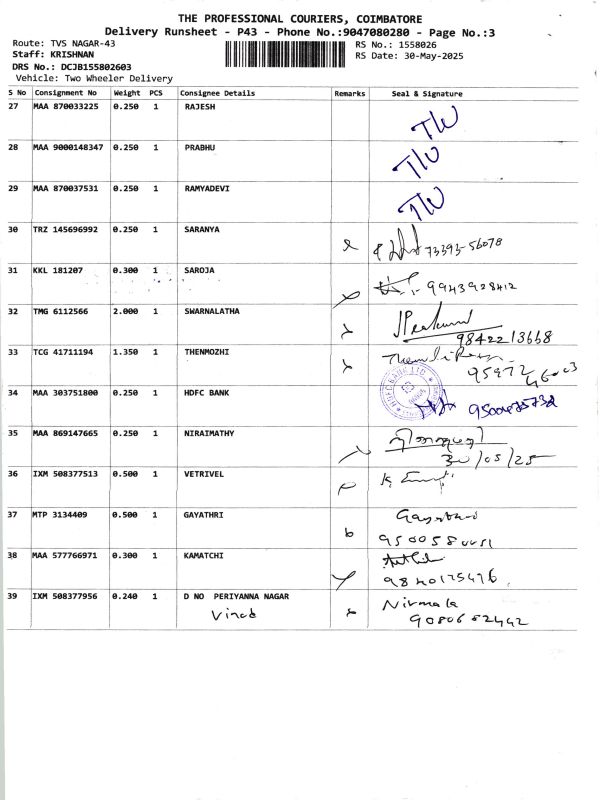 THE PROFESSIONAL COURIERS, COIMBATORE
Delivery Runsheet - P43 - Phone No.:9047080280 - Page No.:3
Route: TVS NAGAR-43 RS No.: 1558026
Staff: KRISHNAN RS Date: 30-May-2025
DRS No.: DCJB155802603
Vehicle: Two Wheeler Delivery
S No Consignment No Weight PCS Consignee Details Remarks Seal & Signature
27 MAA 870033225 0.250 1 RAJESH
28 MAA 9000148347 0.250 1 PRABHU
29 MAA 870037531 0.250 1 RAMYADEVI
30 TRZ 145696992 0.250 1 SARANYA
73393-56078
31 KKL 181207 0.300 1 SAROJA
9943928412
32 TMG 6112566 2.000 1 SWARNALATHA
9842213668
33 TCG 41711194 1.350 1 THENMOZHI
95972
46003
34 MAA 303751800 0.250 1 HDFC BANK
HDFC BANK LTD
35 MAA 869147665 0.250 1 NIRAIMATHY
30/05/25
36 IXM 508377513 0.500 1 VETRIVEL
37 MTP 3134409 0.500 1 GAYATHRI
38 MAA 577766971 0.300 1 KAMATCHI
9840175476
39 IXM 508377956 0.240 1 D NO PERIYANNA NAGAR Nirmala
Vinod 9080652442